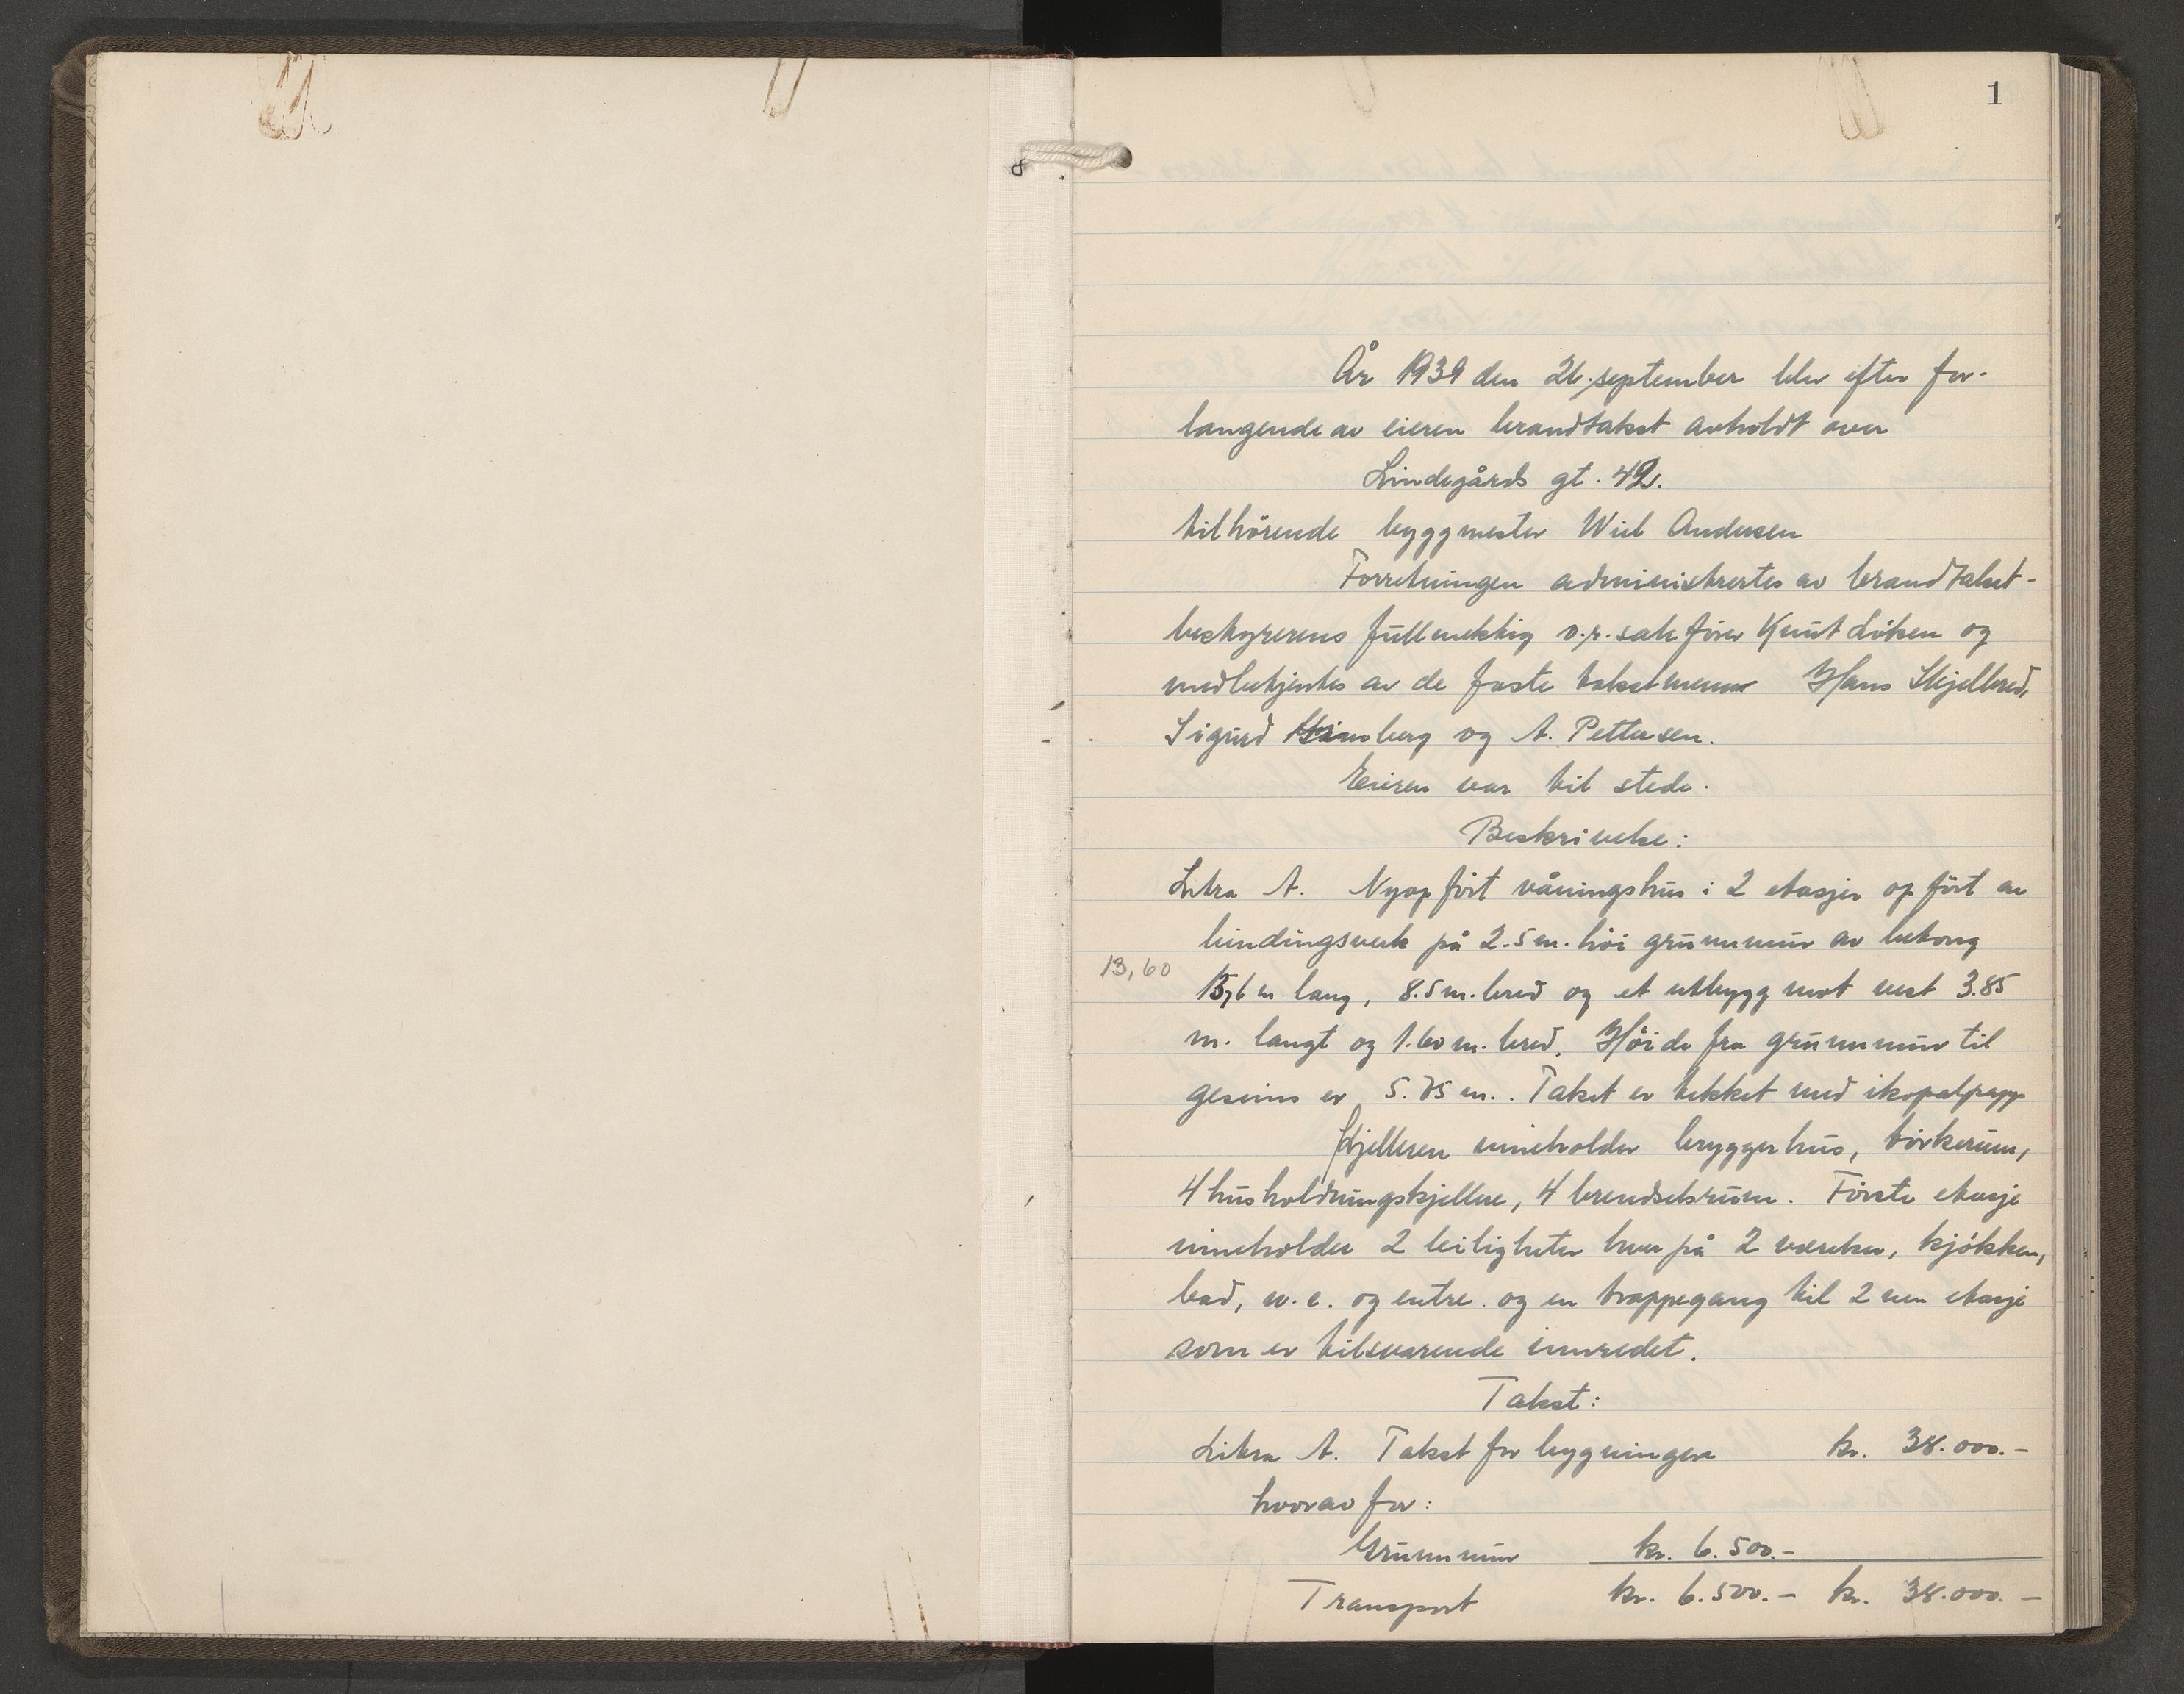 1
År 1939 den 26. september blev efter for-
langende av eieren brandtakst avholdt over
Lindegårds gt. 42.
tilhörende byggmester Wiel Andersen
Forretningen administrertes av brandtakst-
bestyrerens fullmektig o.r. sakförer Knut Löken og
medbetjentes av de faste takstmenn Hans Skjelbred,
Sigurd Grimberg og A. Pettersen.
Eieren var til stede.
Beskrivelse:
Litra A. Nyopfört våningshus i 2 etasjer opfört av
bindingsverk på 2.5 m. höi grunnmur av betong
13,60
13,6 m lang, 8.5 m. bred og et utbygg mot vest 3.85
m. langt og 1.60 m. bred. Höide fra grunnmur til
gesims er 5.75 m.. Taket er tekket med ikopalpapp
Kjelleren inneholder bryggerhus, törkerum,
4 husholdningskjellere, 4 brendselsrum. Förste etasje
inneholder 2 leiligheter hver på 2 værelser, kjökken,
bad, w.c. og entre og en trappegang til 2 nen etasje
som er tilsvarende innredet.
Takst:
Litra A. Takst for bygningen kr. 38.000.-
hvorav for:
Grunnmur kr. 6.500.-
Transport kr. 6.500.- kr. 38.000.-